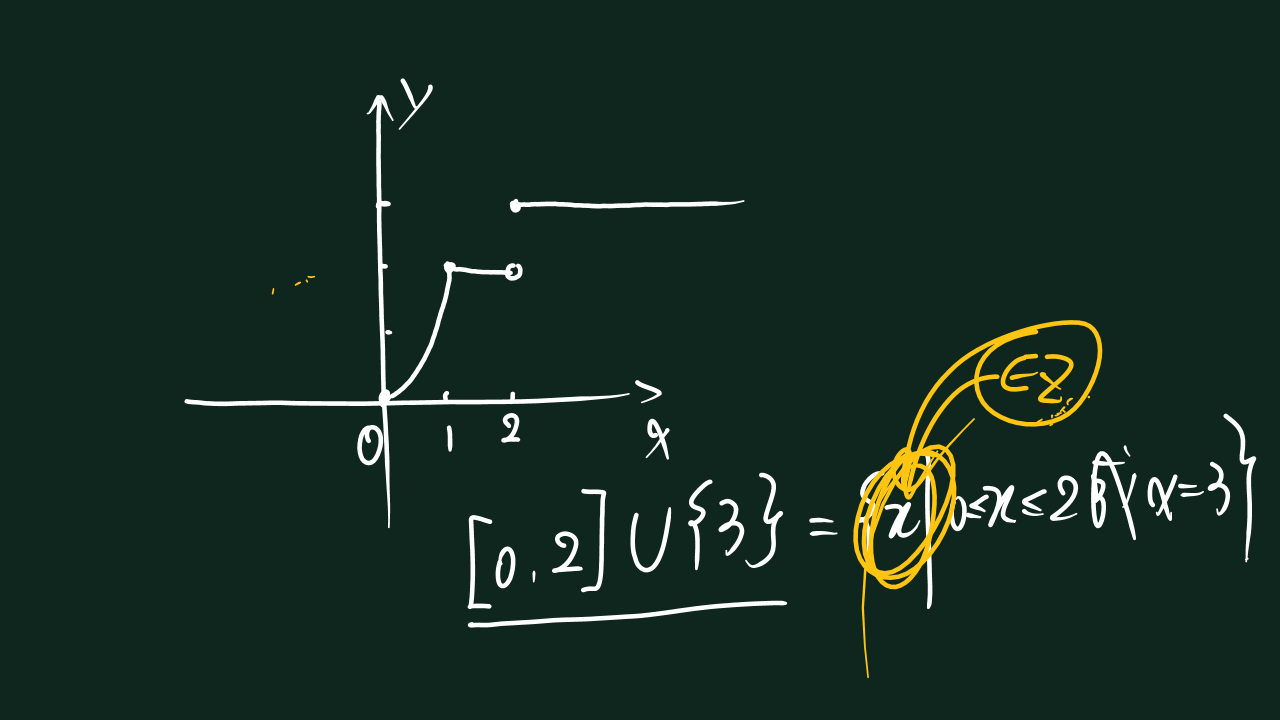 y
0 1 2 x
∈Z
[0, 2] ∪ {3} = {x | 0 ≤ x ≤ 2 x = 3}